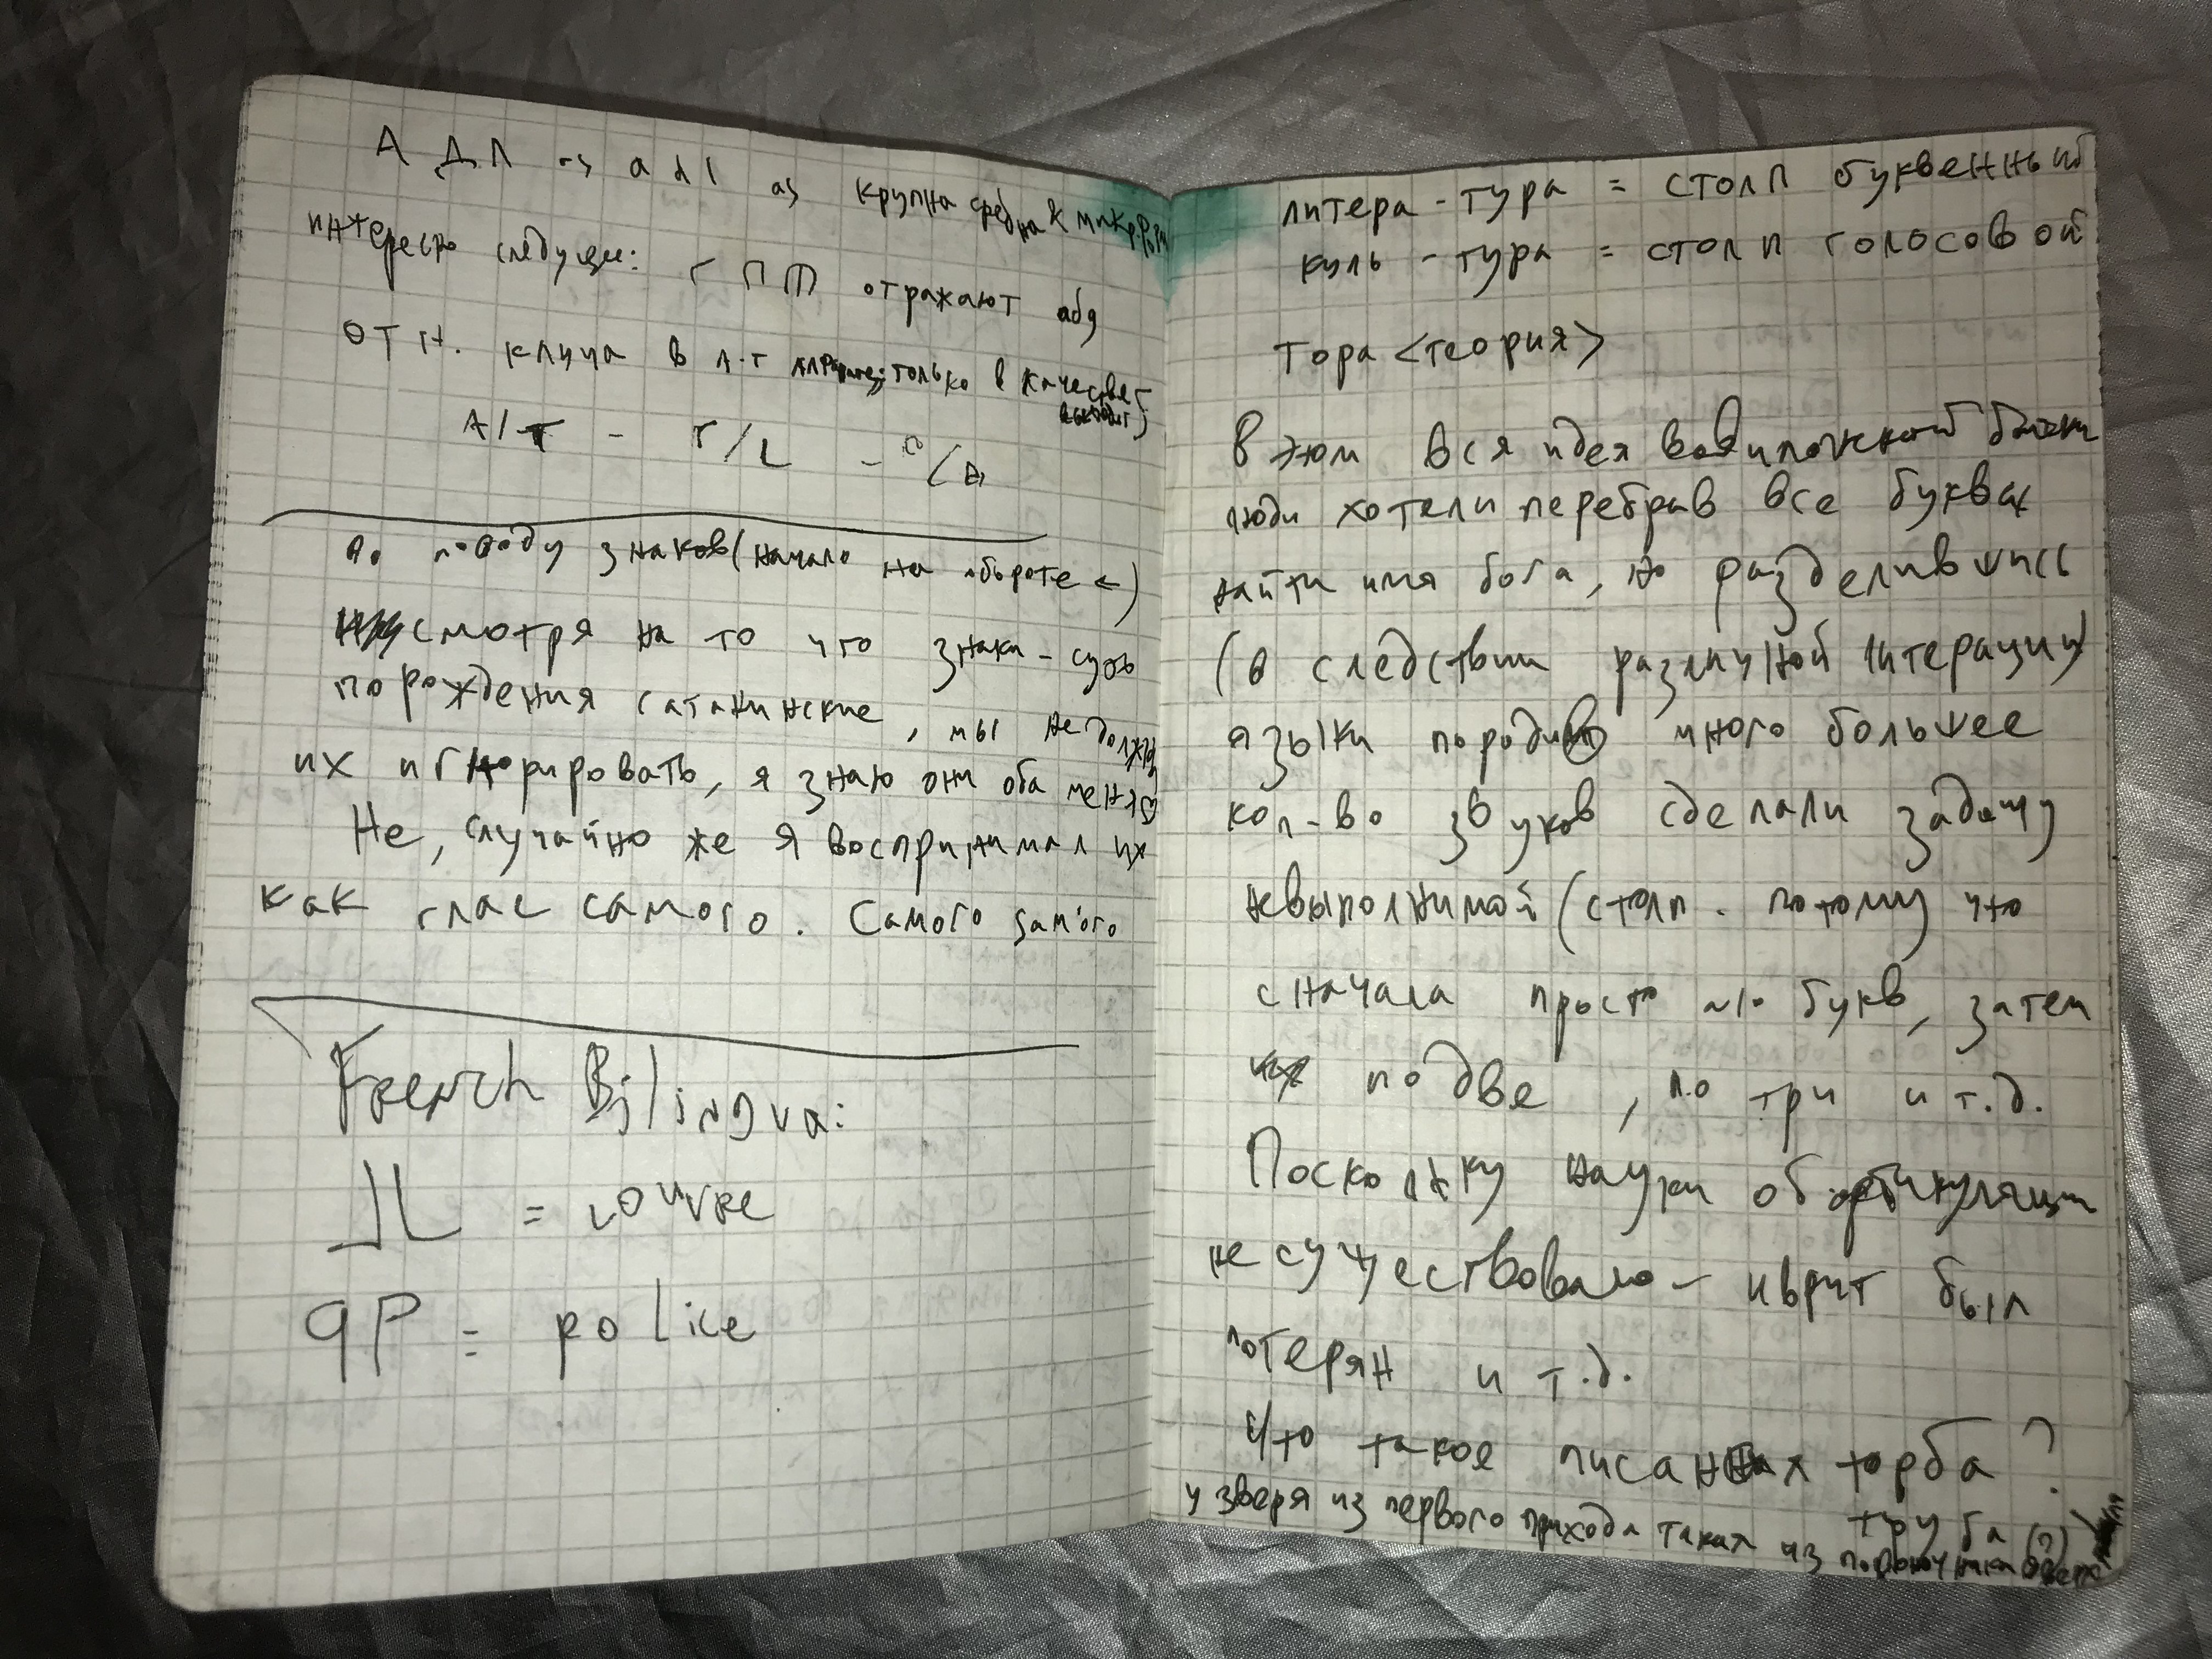 А Д Л
интересно следущее: Г П Ш отражают абд
отн. ключа в л-т только в качестве
А/Т - Г/L -
по поводу знаков (начало на обороте ←)
смотря на то что знаки - суть
порождения сатанинские, мы не должны
их игнорировать, я знаю они оба меня ♡
Не, случайно же я воспринимал их
как глас самого. Самого зам'ого
French Bilingva:
⅃L = Louvre
qP = police
литера - тура = столп буквенный
куль - тура = столп голосовой
Тора <теория>
В этом вся идея вавилонской башни
люди хотели перебрав все буквы
найти имя бога, но разделившись
(в следствии различной литерации)
языки породив много большее
кол-во звуков сделали задачу
невыполнимой (столп - потому что
сначала просто букв, затем
по две, по три и т.д.
Поскольку науки об артикуляции
не существовало - иврит был
потерян и т.д.
Что такое писанная торба?
труба (?)
у зверя из первого прихода такая из